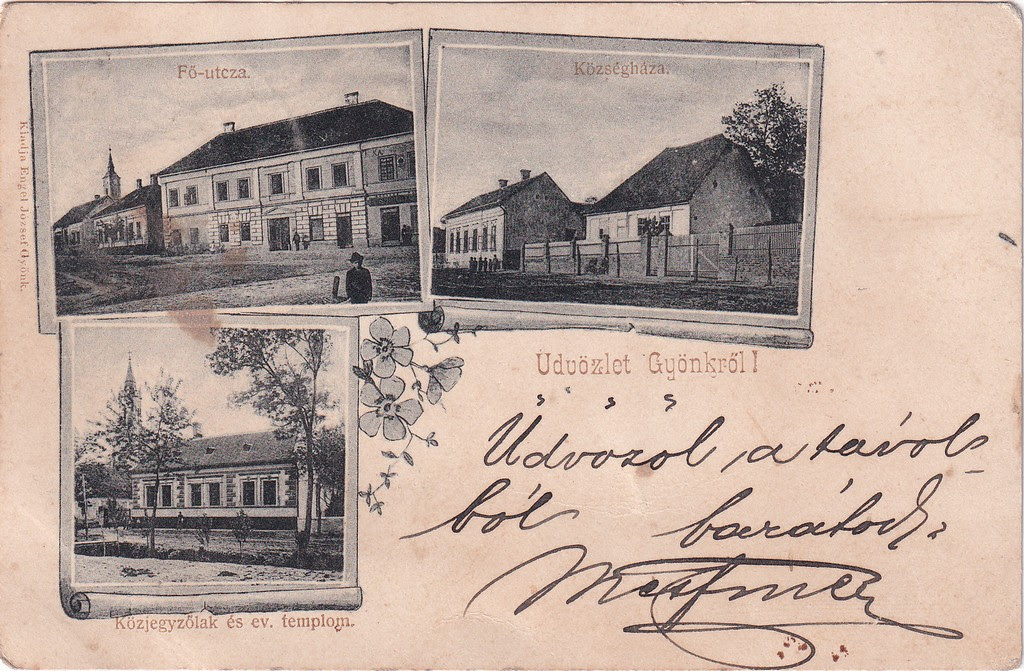 Fő-utcza.
Községháza.
Kiadja Engel József Gyönk.
Üdvözlet Gyönkről!
Üdvözöl a távol-
ból barátod:
Közjegyzőlak és ev. templom.